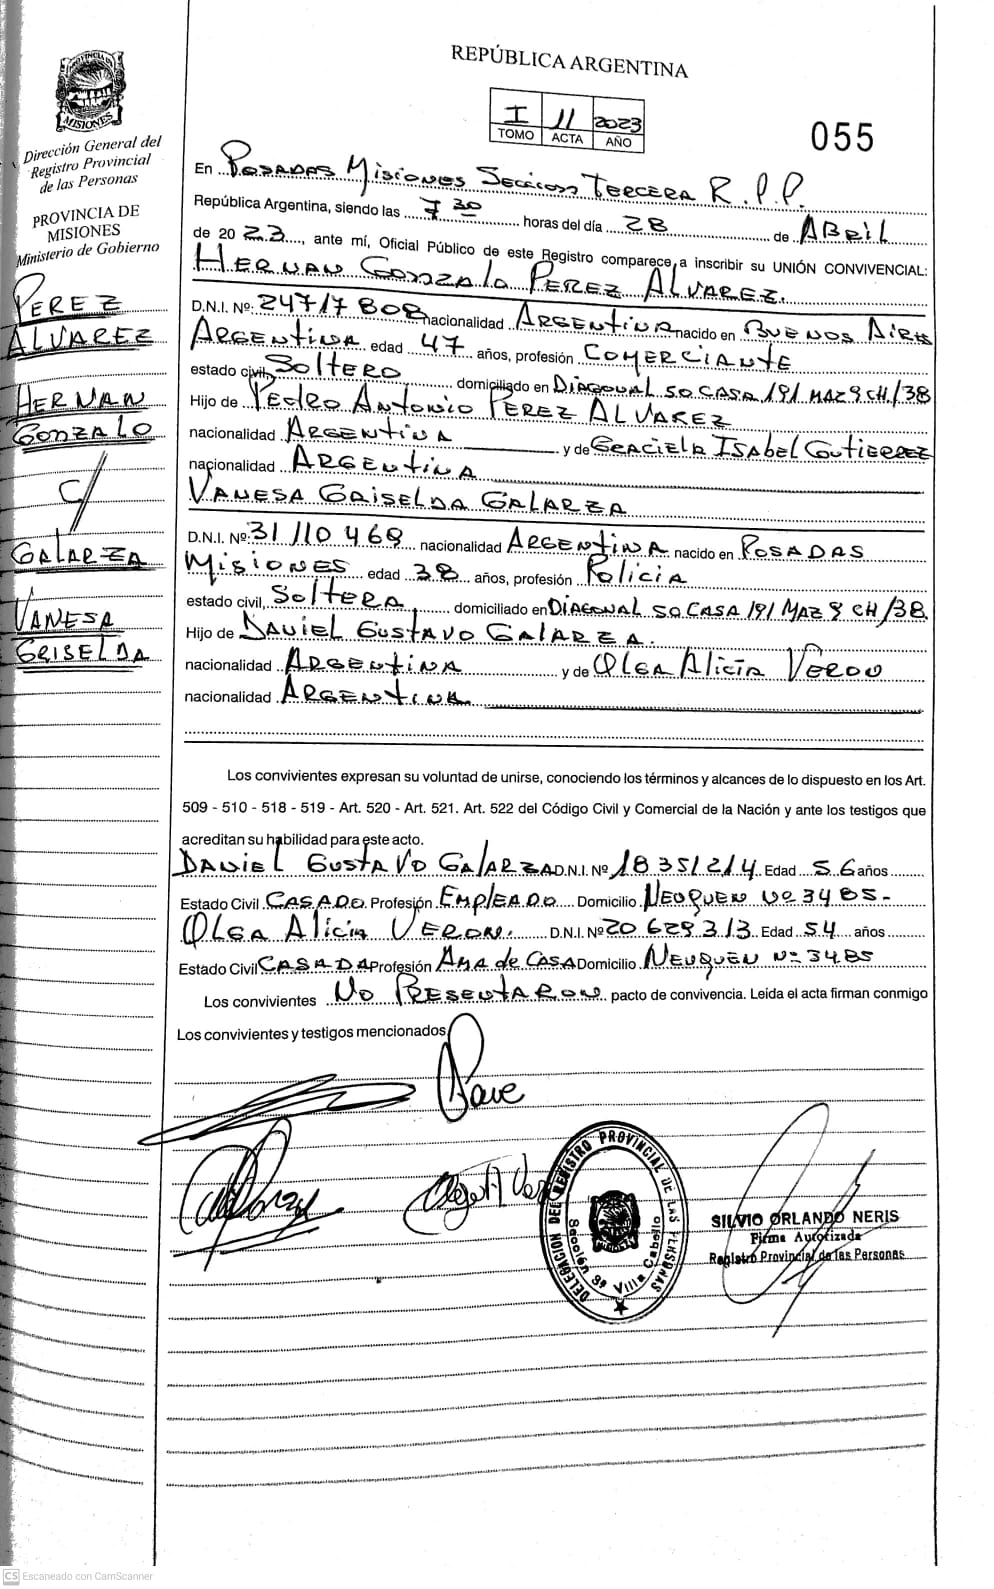 REPÚBLICA ARGENTINA
PROVINCIA DE MISIONES
I 11 2023
TOMO ACTA AÑO
055
Dirección General del
Registro Provincial
de las Personas
PROVINCIA DE
MISIONES
Ministerio de Gobierno
PEREZ
ALVAREZ
HERNAN
GONZALO
c/
GALARZA
VANESA
GRISELDA
En POSADAS MISIONES SECCION TERCERA R.P.P.
República Argentina, siendo las 7 30 horas del día 28 de ABRIL
de 20 23, ante mí, Oficial Público de este Registro comparece a inscribir su UNIÓN CONVIVENCIAL:
HERNAN GONZALO PEREZ ALVAREZ.
D.N.I. Nº: 24717808 nacionalidad ARGENTINA nacido en BUENOS AIRES
ARGENTINA edad 47 años, profesión COMERCIANTE
estado civil, SOLTERO domiciliado en DIAGONAL SO CASA 191 MAZ 9 CH/38
Hijo de PEDRO ANTONIO PEREZ ALVAREZ
nacionalidad ARGENTINA y de GRACIELA ISABEL GUTIERREZ
nacionalidad ARGENTINA
VANESA GRISELDA GALARZA
D.N.I. Nº: 31110469 nacionalidad ARGENTINA nacido en POSADAS
MISIONES edad 38 años, profesión POLICIA
estado civil, SOLTERA, domiciliado en DIAGONAL SO CASA 191 MAZ 9 CH/38
Hijo de DANIEL GUSTAVO GALARZA.
nacionalidad ARGENTINA y de OLGA ALICIA VERON
nacionalidad ARGENTINA
Los convivientes expresan su voluntad de unirse, conociendo los términos y alcances de lo dispuesto en los Art.
509 - 510 - 518 - 519 - Art. 520 - Art. 521. Art. 522 del Código Civil y Comercial de la Nación y ante los testigos que
acreditan su habilidad para este acto.
DANIEL GUSTAVO GALARZA D.N.I. Nº 18351214 Edad 56 años
Estado Civil CASADO Profesión EMPLEADO Domicilio NEUQUEN Nº 3485-
OLGA ALICIA VERON. D.N.I. Nº 20629313 Edad 54 años
Estado Civil CASADA Profesión AMA de CASA Domicilio NEUQUEN Nº 3485
Los convivientes NO PRESENTARON pacto de convivencia. Leída el acta firman conmigo
Los convivientes y testigos mencionados
DELEGACION DEL REGISTRO PROVINCIAL DE LAS PERSONAS
Sección 3ª Villa Cabello
SILVIO ORLANDO NERIS
Firma Autorizada
Registro Provincial de las Personas
CS Escaneado con CamScanner